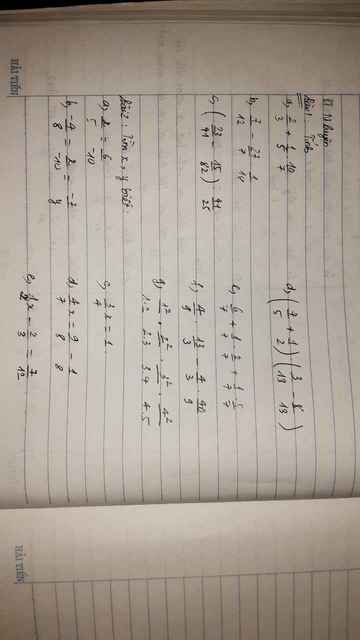 HẢI TIẾN
II. Luyện
Bài 1: Tính
a, 2/3 + 1/5 . 10/7
b, 7/12 - 27/7 . 1/18
c, (23/41 - 15/82) . 41/25
d, (7/5 + 1/2) . (3/13 - 8/13)
e, 6/7 + 1/7 . 2/7 + 1/7 . 5/7
f, 4/9 . 13/3 - 4/3 . 40/9
g, 1²/1.2 . 2²/2.3 . 3²/3.4 . 4²/4.5
Bài 2: Tìm x, y biết:
a, x/5 = 6/-10
b, -4/8 = x/-10 = -7/y
c, 3/4 x = 1
d, 4/7 x = 9/8 - 1/8
e, x - 2/3 = 7/12
HẢI TIẾN